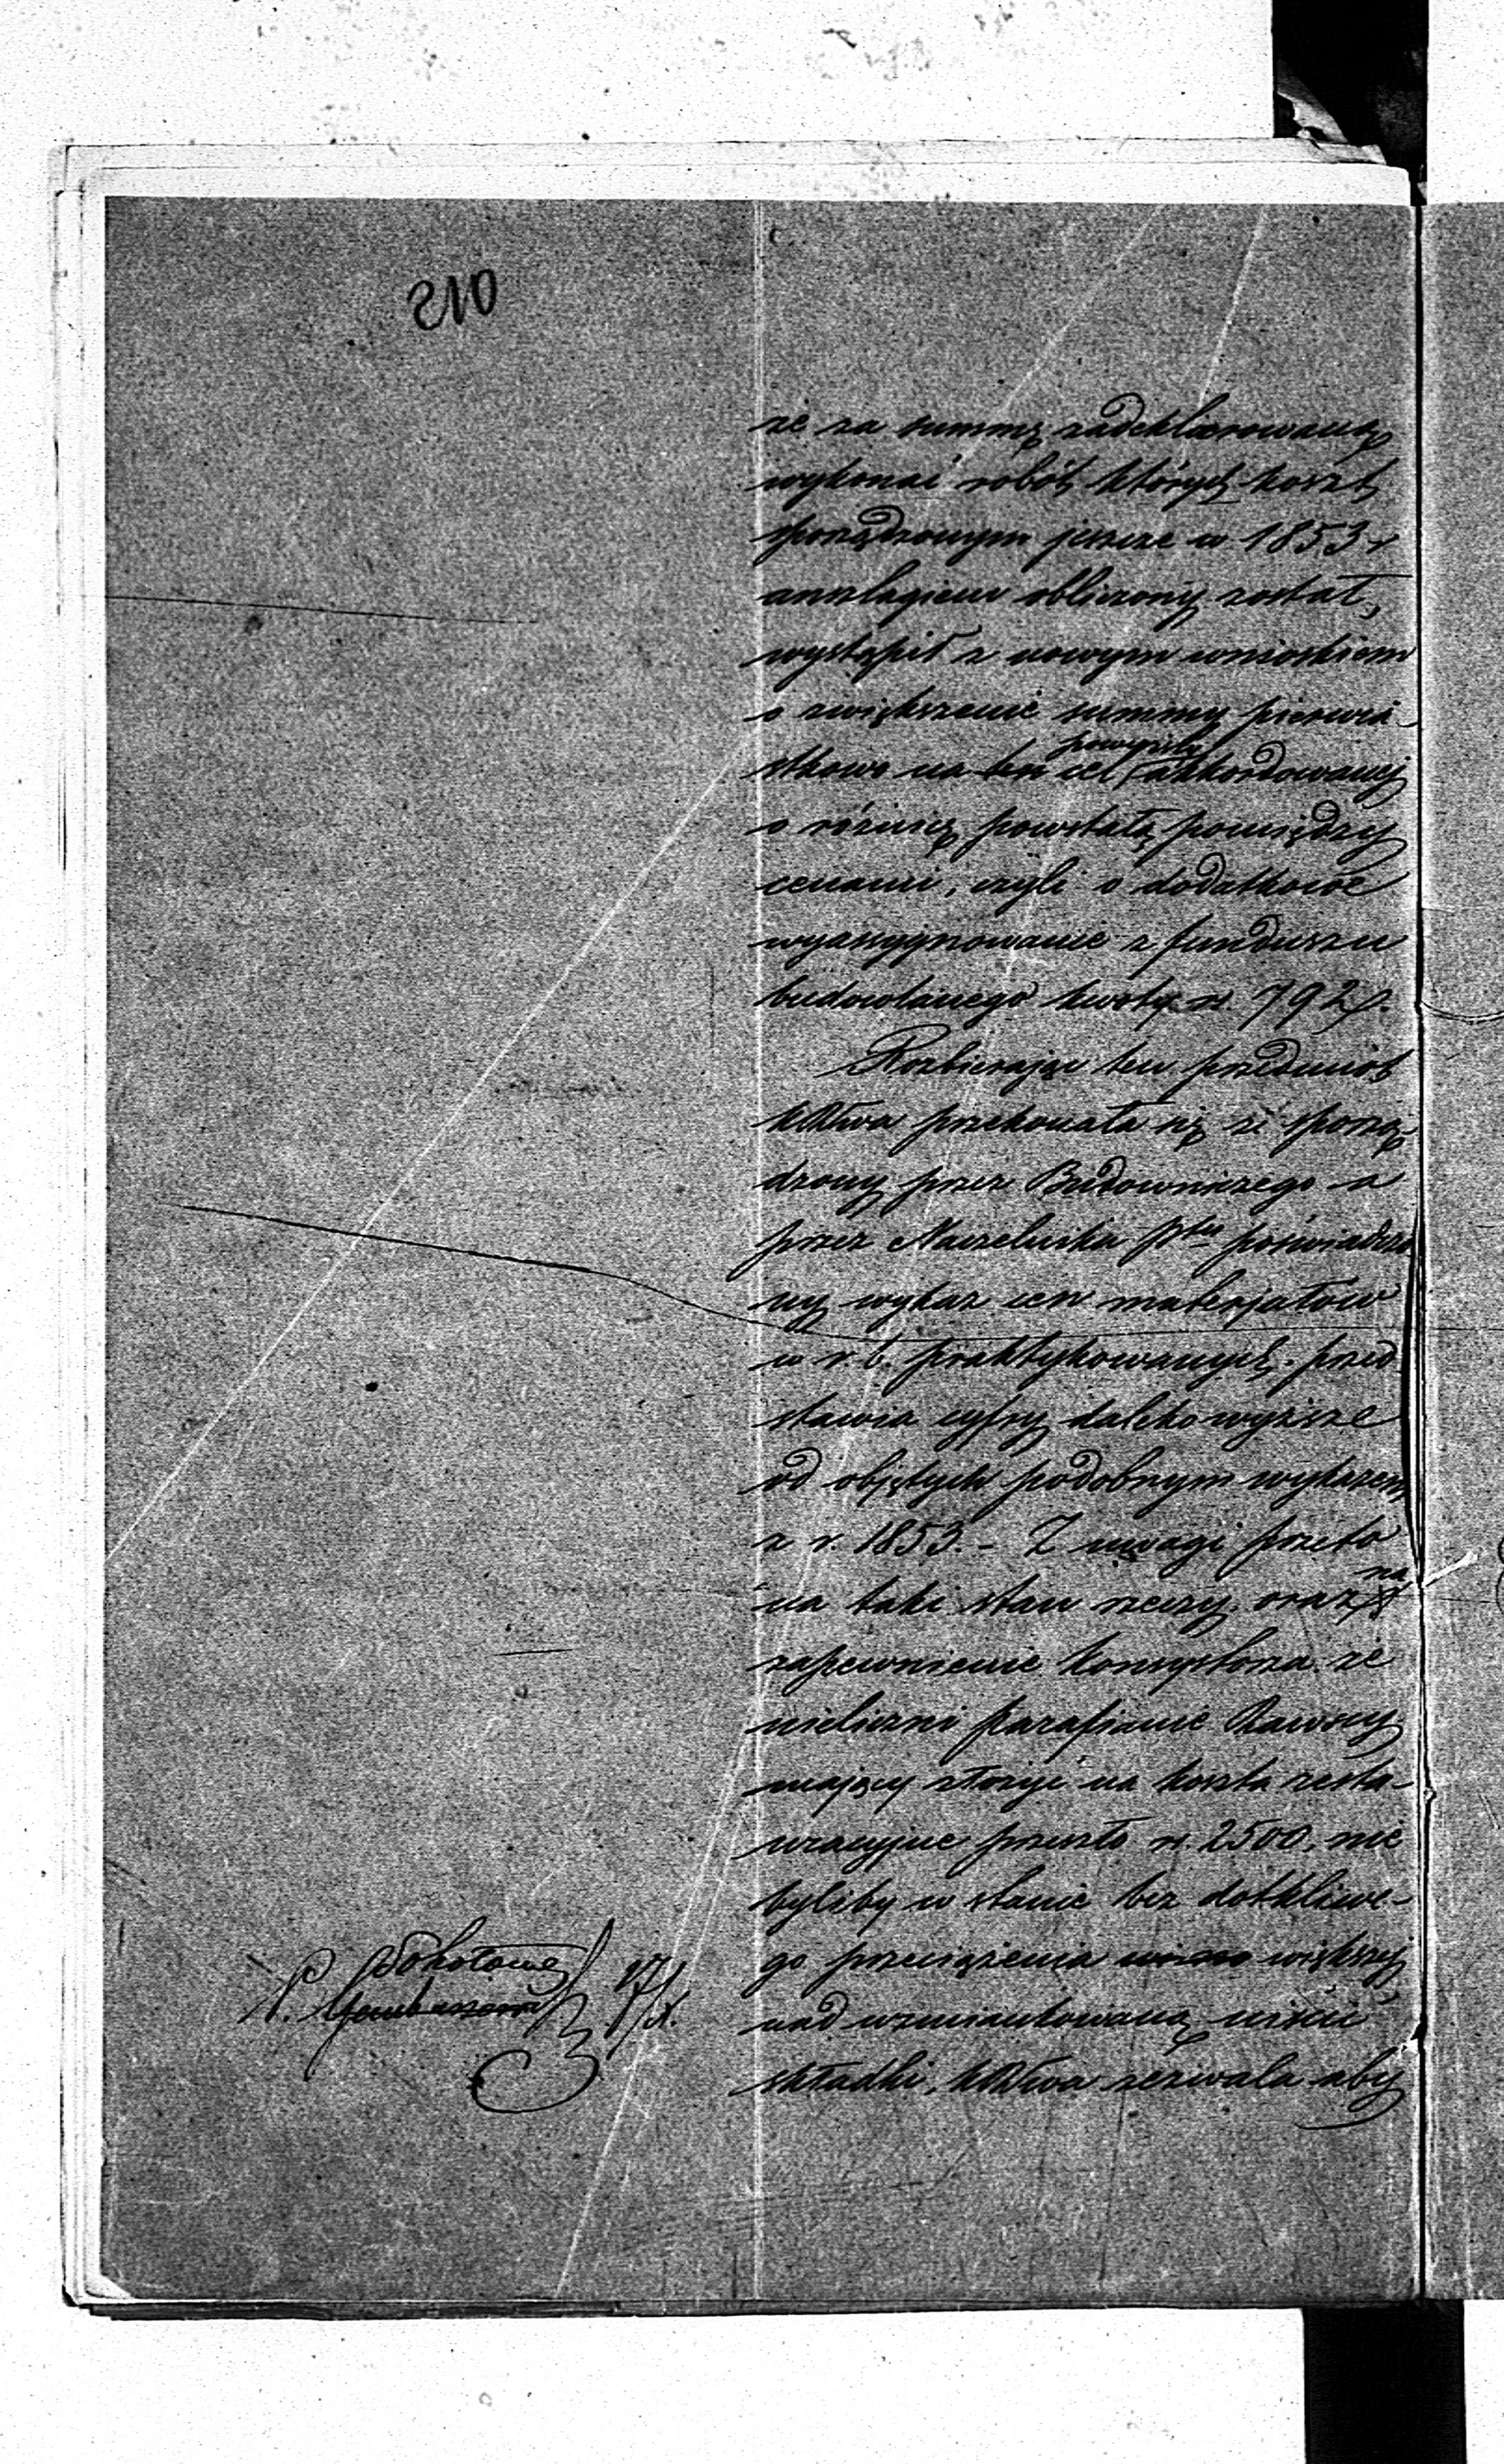 że za summę zadeklarowaną
wykonać robót których koszt
sporządzonym jeszcze w 1853 r
anszlagiem obliczony został,
wystąpił z nowym wnioskiem
o zwiększenie summy pierwia-
powyższy
stkowo na ten cel akkordowanej
o różnicę powstałą pomiędzy
cenami, czyli o dodatkowe
wyassygnowanie z funduszu
budowlanego kwoty rs. 792.
Rozbierając ten przedmiot
przekonała się że sporzą-
dzony przez Budowniczego a
przez Naczelnika Ptu poświadczo
ny wykaz cen materjałów
w r. b. praktykowanych, przed
stawia cyfry daleko wyższe
od objętych podobnym wykazem
z r. 1853. - Z uwagi przeto
na taki stan rzeczy, oraz na
zapewnienie Konsystorza że
nieliczni parafianie Rawscy
mający złożyć na koszta resta-
uracyjne przeszło rs. 2500, nie
byliby w stanie bez dotkliwe-
go przeciążenia większej
nad wzmiankowaną uiścić
składki, zezwala aby
17/X.